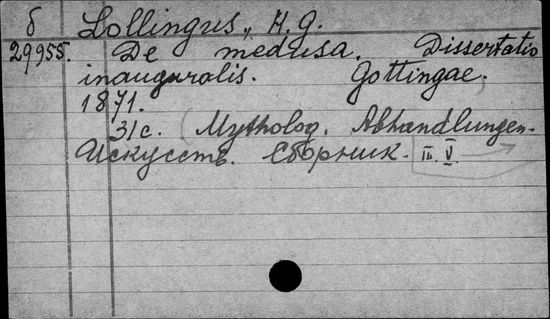 б Lollingus, H. G.
29955. De medusa. Dissertatio
inauguralis. Gottingae.
1871.
31c. (Mytholog. Abhandlungen.
Искусств. Сборник. III. V.)